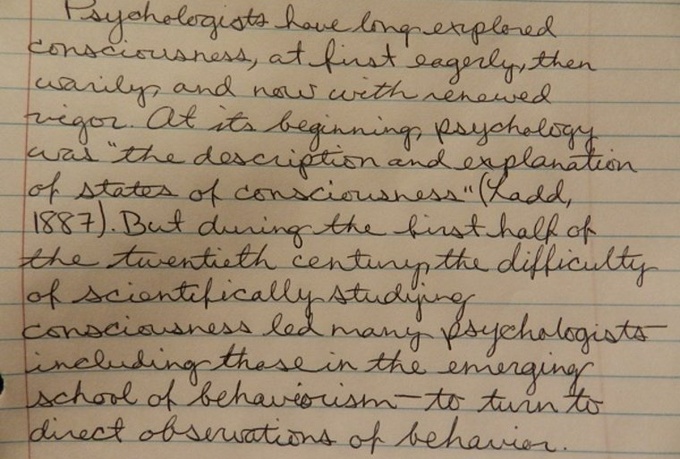 Psychologists have long explored
consciousness, at first eagerly, then
warily, and now with renewed
vigor. At its beginning, psychology
was "the description and explanation
of states of consciousness" (Ladd,
1887). But during the first half of
the twentieth century, the difficulty
of scientifically studying
consciousness led many psychologists—
including those in the emerging
school of behaviorism—to turn to
direct observations of behavior.